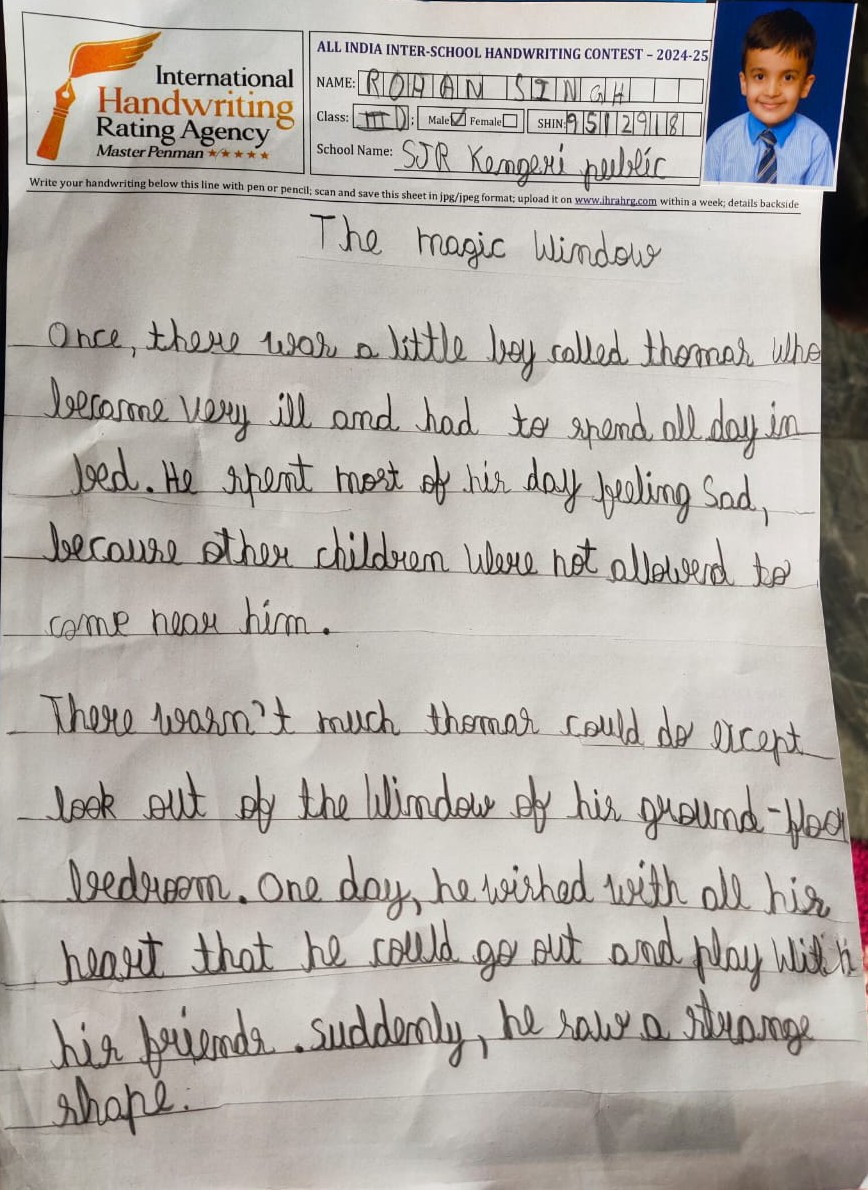 International
Handwriting
Rating Agency
Master Penman
ALL INDIA INTER-SCHOOL HANDWRITING CONTEST – 2024-25
NAME: ROHAN SINGH
Class: III D; Male Female SHIN: 9512918
School Name: SJR Kengeri public
Write your handwriting below this line with pen or pencil; scan and save this sheet in jpg/jpeg format; upload it on www.ihrahrg.com within a week; details backside
The magic Window
Once, there was a little boy called thomas who
became very ill and had to spend all day in
bed. He spent most of his day feeling Sad,
because other children were not allowend to
come near him.
There wasn't much thomas could do except
look out of the Window of his ground-floor
bedroom. One day, he wished with all his
heart that he could go out and play With
his friends. suddenly, he saw a strange
shape.